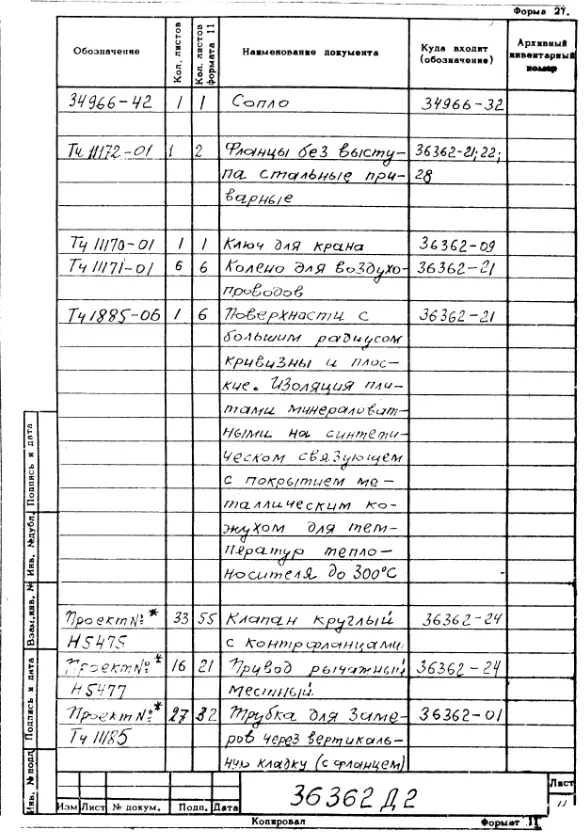 Форма 27.
Обозначение Кол. листов Кол. листов формата 11 Наименование документа Куда входит (обозначение) Архивный инвентарный номер
34966-42 1 1 Сопло 34966-32
Тч 11172-01 1 2 Фланцы без высту- 36362-21; 22;
па стальные при- 28
варные
Тч 11170-01 1 1 Ключ для крана 36362-09
Тч 11171-01 6 6 Колено для воздухо- 36362-21
проводов
Тч 1885-06 1 6 Поверхности с 36362-21
большим радиусом
кривизны и плос-
кие. Изоляция пли-
тами минераловат-
ными на синтети-
ческом связующем
с покрытием ме-
таллическим ко-
жухом для тем-
ператур тепло-
носителя до 300°С
Проект №* 33 55 Клапан круглый 36362-24
Н5475 с контрфланцами
Проект №* 16 21 Привод рычажный 36362-24
Н5477 местный
Проект №* 27 32 Трубка для заме- 36362-01
Тч 11185 ров через вертикаль-
ную кладку (с фланцем)
Инв. № подл. Подпись и дата Взам.инв. № Инв. №дубл. Подпись и дата
Изм Лист № докум. Подп. Дата
36362 Д2
Лист
11
Копировал Формат 11